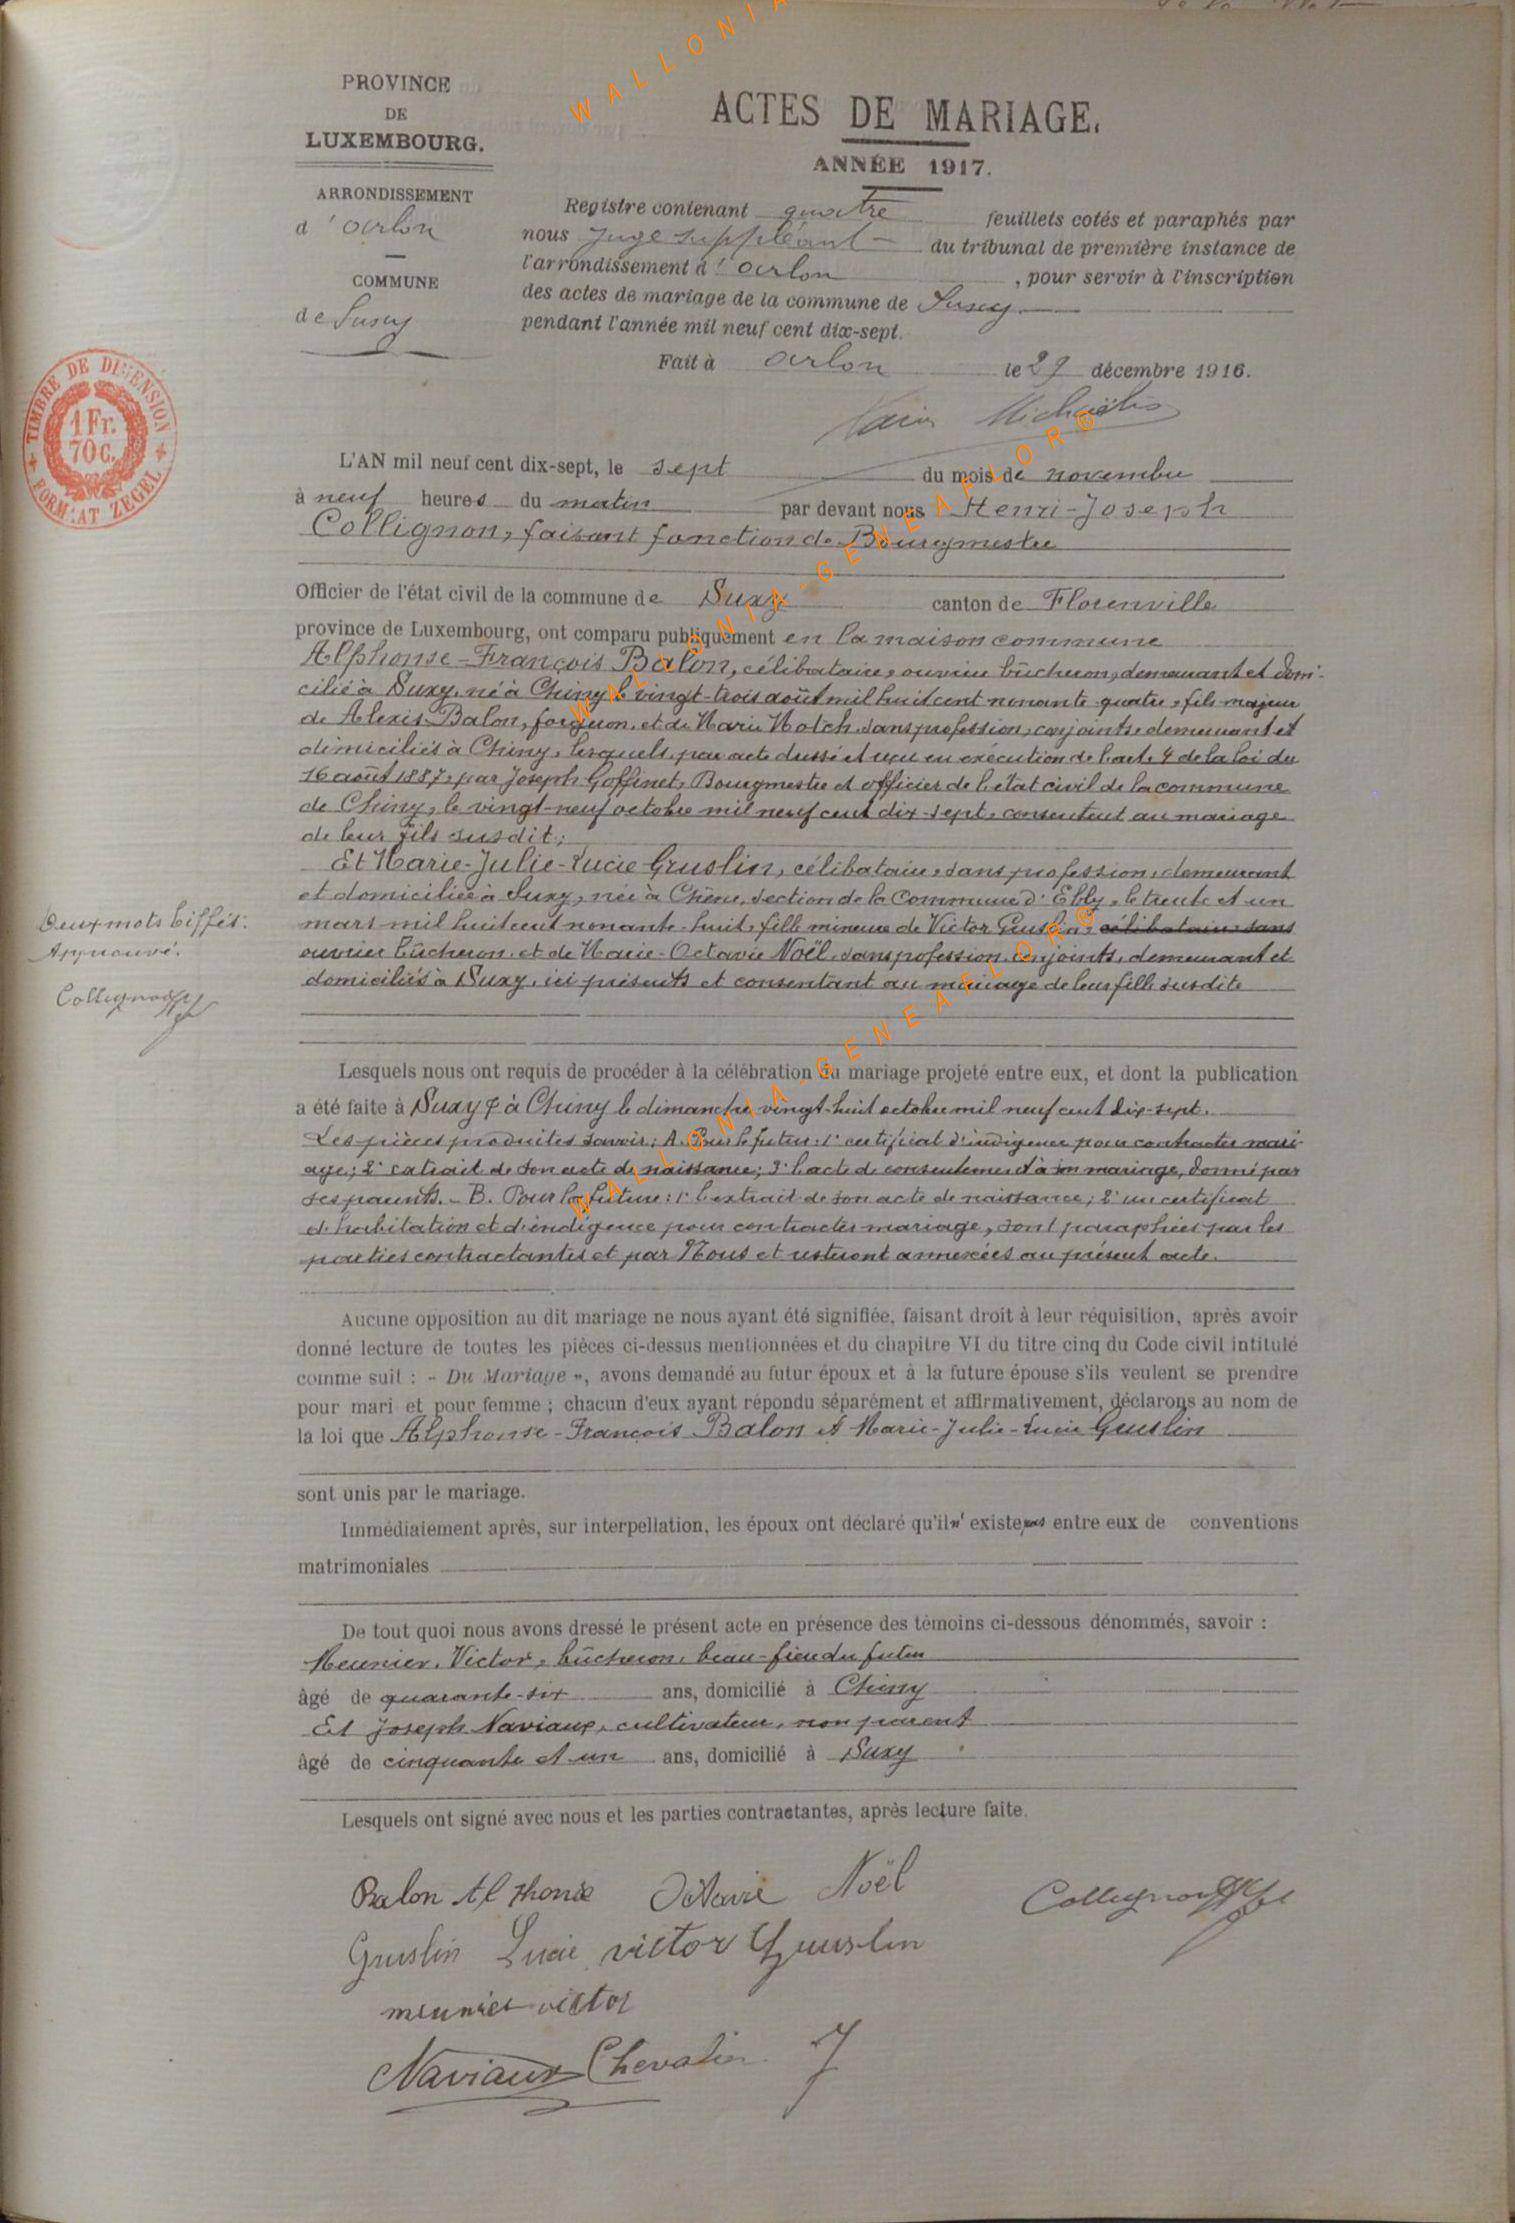 PROVINCE
DE
LUXEMBOURG.
ARRONDISSEMENT
d'Arlon
COMMUNE
de Suxy
ACTES DE MARIAGE.
ANNÉE 1917.
Registre contenant quatre feuillets cotés et paraphés par
nous juge suppléant du tribunal de première instance de
l'arrondissement d'Arlon, pour servir à l'inscription
des actes de mariage de la commune de Suxy
pendant l'année mil neuf cent dix-sept.
Fait à Arlon le 29 décembre 1916.
TIMBRE DE DIMENSION
1 Fr.
70 C.
FORMAAT ZEGEL
L'AN mil neuf cent dix-sept, le sept du mois de novembre
à neuf heures du matin par devant nous Henri-Joseph
Collignon, faisant fonction de Bourgmestre
Officier de l'état civil de la commune de Suxy canton de Florenville
province de Luxembourg, ont comparu publiquement en la maison commune
Alphonse-François Balon, célibataire, ouvrier bûcheron, demeurant et domi-
cilié à Suxy, né à Chiny le vingt-trois août mil huit cent nonante-quatre, fils majeur
de Alexis Balon, forgeron, et de Marie Hotch, sans profession, conjoints, demeurant et
domiciliés à Chiny, lesquels, par acte dressé et reçu en exécution de l'art. 4 de la loi du
16 août 1887, par Joseph Goffinet, Bourgmestre et officier de l'état civil de la commune
de Chiny, le vingt-neuf octobre mil neuf cent dix-sept, consentent au mariage
de leur fils susdit;
Et Marie-Julie-Lucie Gruslin, célibataire, sans profession, demeurant
et domiciliée à Suxy, née à Chêne, section de la Commune d'Ebly, le trente et un
mars mil huit cent nonante-huit, fille mineure de Victor Gruslin, célibataire, sans
ouvrier bûcheron, et de Marie-Octavie Noël, sans profession, conjoints, demeurant et
domiciliés à Suxy, ici présents et consentant au mariage de leur fille susdite
Deux mots biffés.
Approuvé.
Collignon
Lesquels nous ont requis de procéder à la célébration du mariage projeté entre eux, et dont la publication
a été faite à Suxy & à Chiny le dimanche vingt-huit octobre mil neuf cent dix-sept.
Les pièces produites savoir: A. Pour le futur: 1° certificat d'indigence pour contracter mari-
age; 2° extrait de son acte de naissance; 3° l'acte de consentement à son mariage, donné par
ses parents. - B. Pour la future: 1° l'extrait de son acte de naissance; 2° un certificat
d'habitation et d'indigence pour contracter mariage, sont paraphées par les
parties contractantes et par Nous et resteront annexées au présent acte.
Aucune opposition au dit mariage ne nous ayant été signifiée, faisant droit à leur réquisition, après avoir
donné lecture de toutes les pièces ci-dessus mentionnées et du chapitre VI du titre cinq du Code civil intitulé
comme suit : « Du Mariage », avons demandé au futur époux et à la future épouse s'ils veulent se prendre
pour mari et pour femme ; chacun d'eux ayant répondu séparément et affirmativement, déclarons au nom de
la loi que Alphonse-François Balon et Marie-Julie-Lucie Gruslin
sont unis par le mariage.
Immédiatement après, sur interpellation, les époux ont déclaré qu'il n'existe pas entre eux de conventions
matrimoniales
De tout quoi nous avons dressé le présent acte en présence des témoins ci-dessous dénommés, savoir :
Meunier, Victor, bûcheron, beau-frère du futur
âgé de quarante-six ans, domicilié à Chiny
Et Joseph Naviaux, cultivateur, non parent
âgé de cinquante et un ans, domicilié à Suxy
Lesquels ont signé avec nous et les parties contractantes, après lecture faite.
Balon Alphonse Octavie Noël Collignon
Gruslin Lucie victor Gruslin
meunier victor
Naviaux Chevalier J
WALLONIA-GENEAFLORE®
WALLONIA-GENEAFLORE®